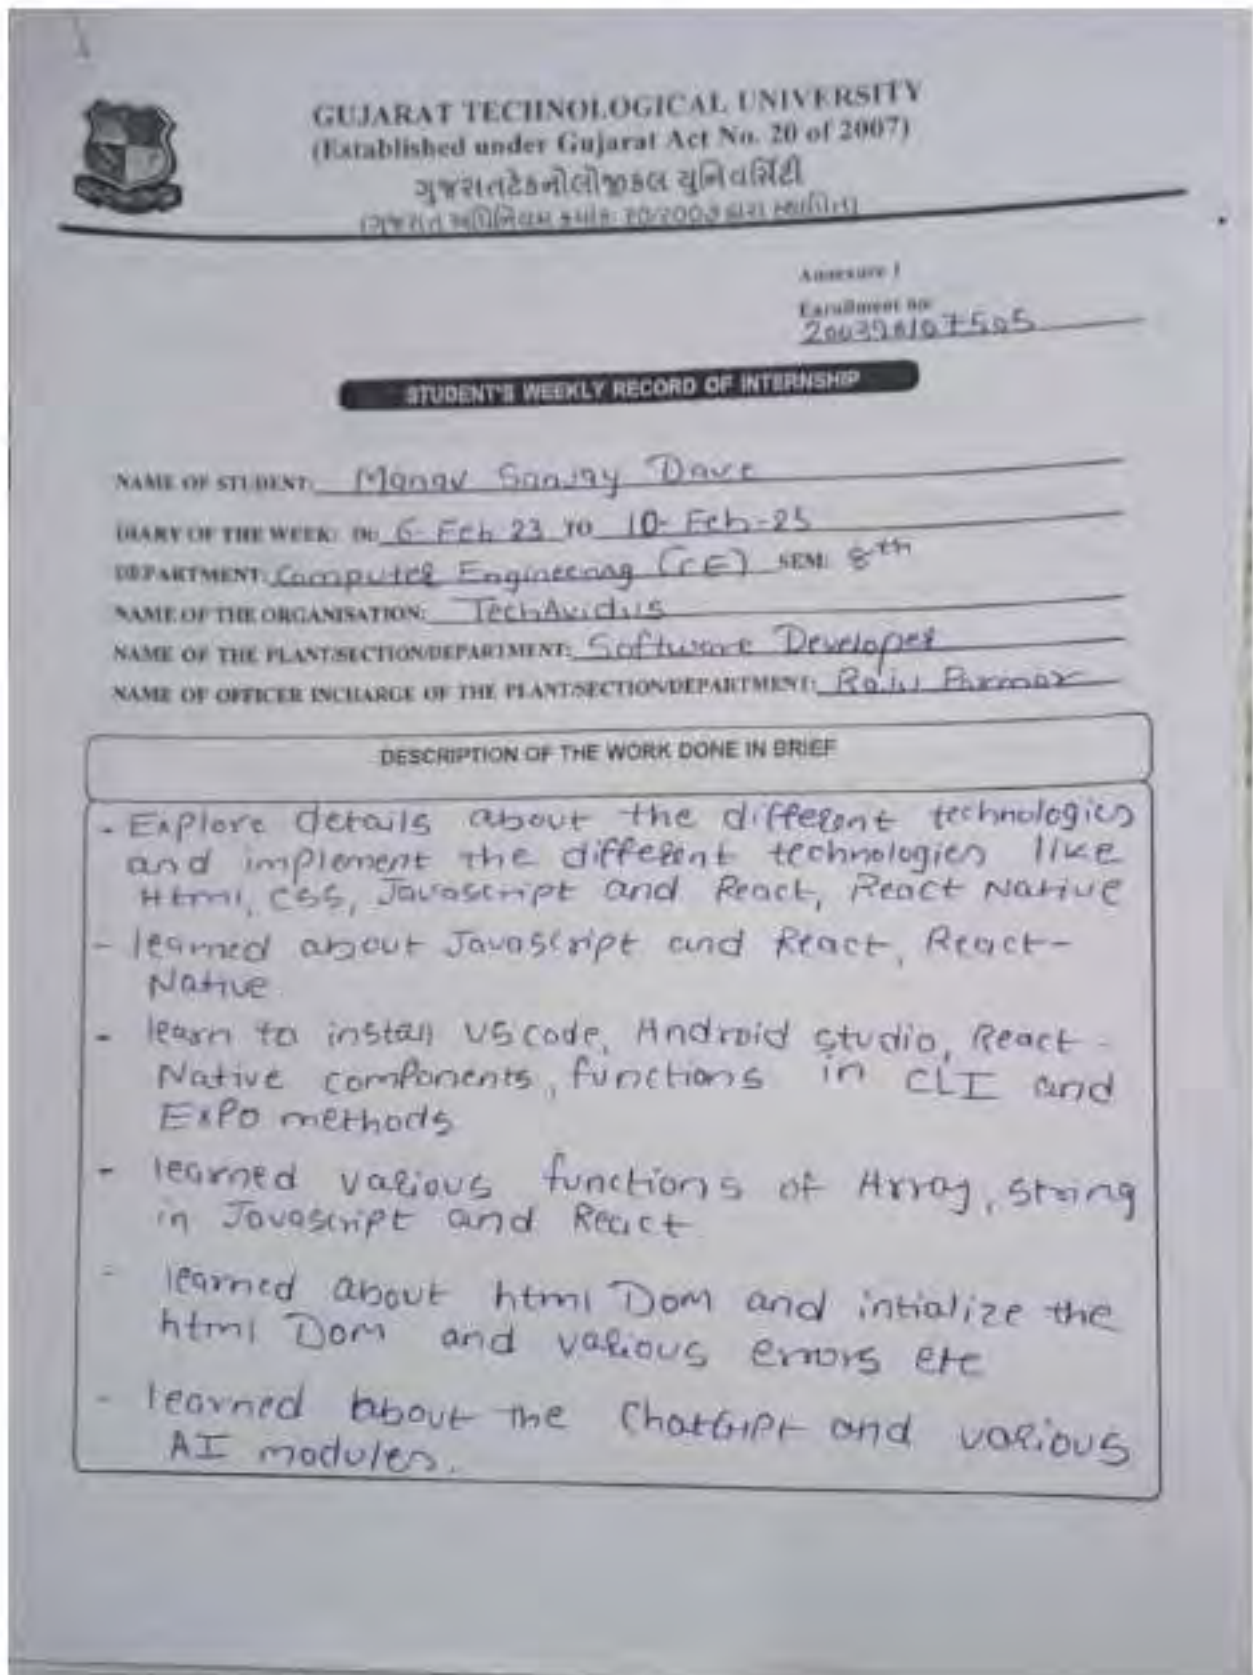 GUJARAT TECHNOLOGICAL UNIVERSITY
(Established under Gujarat Act No. 20 of 2007)
ગુજરાતટેકનોલોજીકલ યુનિવર્સિટી
(ગુજરાત અધિનિયમ ક્રમાંક: ૨૦/૨૦૦૭ દ્વારા સ્થાપિત)
Annexure 1
Enrollment no:
STUDENT'S WEEKLY RECORD OF INTERNSHIP
NAME OF STUDENT: Manav Sanjay Dave
DIARY OF THE WEEK: Dt: 6-Feb 23 TO 10-Feb-25
DEPARTMENT: Computer Engineering (CE) SEM: 8th
NAME OF THE ORGANISATION: TechAvidus
NAME OF THE PLANT/SECTION/DEPARTMENT: Software Developer
NAME OF OFFICER INCHARGE OF THE PLANT/SECTION/DEPARTMENT: Parmar
DESCRIPTION OF THE WORK DONE IN BRIEF
- Explore details about the different technologies
and implement the different technologies like
Html, CSS, Javascript and React, React Native
- learned about Javascript and React, React-
Native
- learn to install VS code, Android studio, React-
Native components, functions in CLI and
Expo methods
- learned various functions of Array, string
in Javascript and React
- learned about html Dom and intialize the
html Dom and various errors etc
- learned about the ChatGPt and various
AI modules.